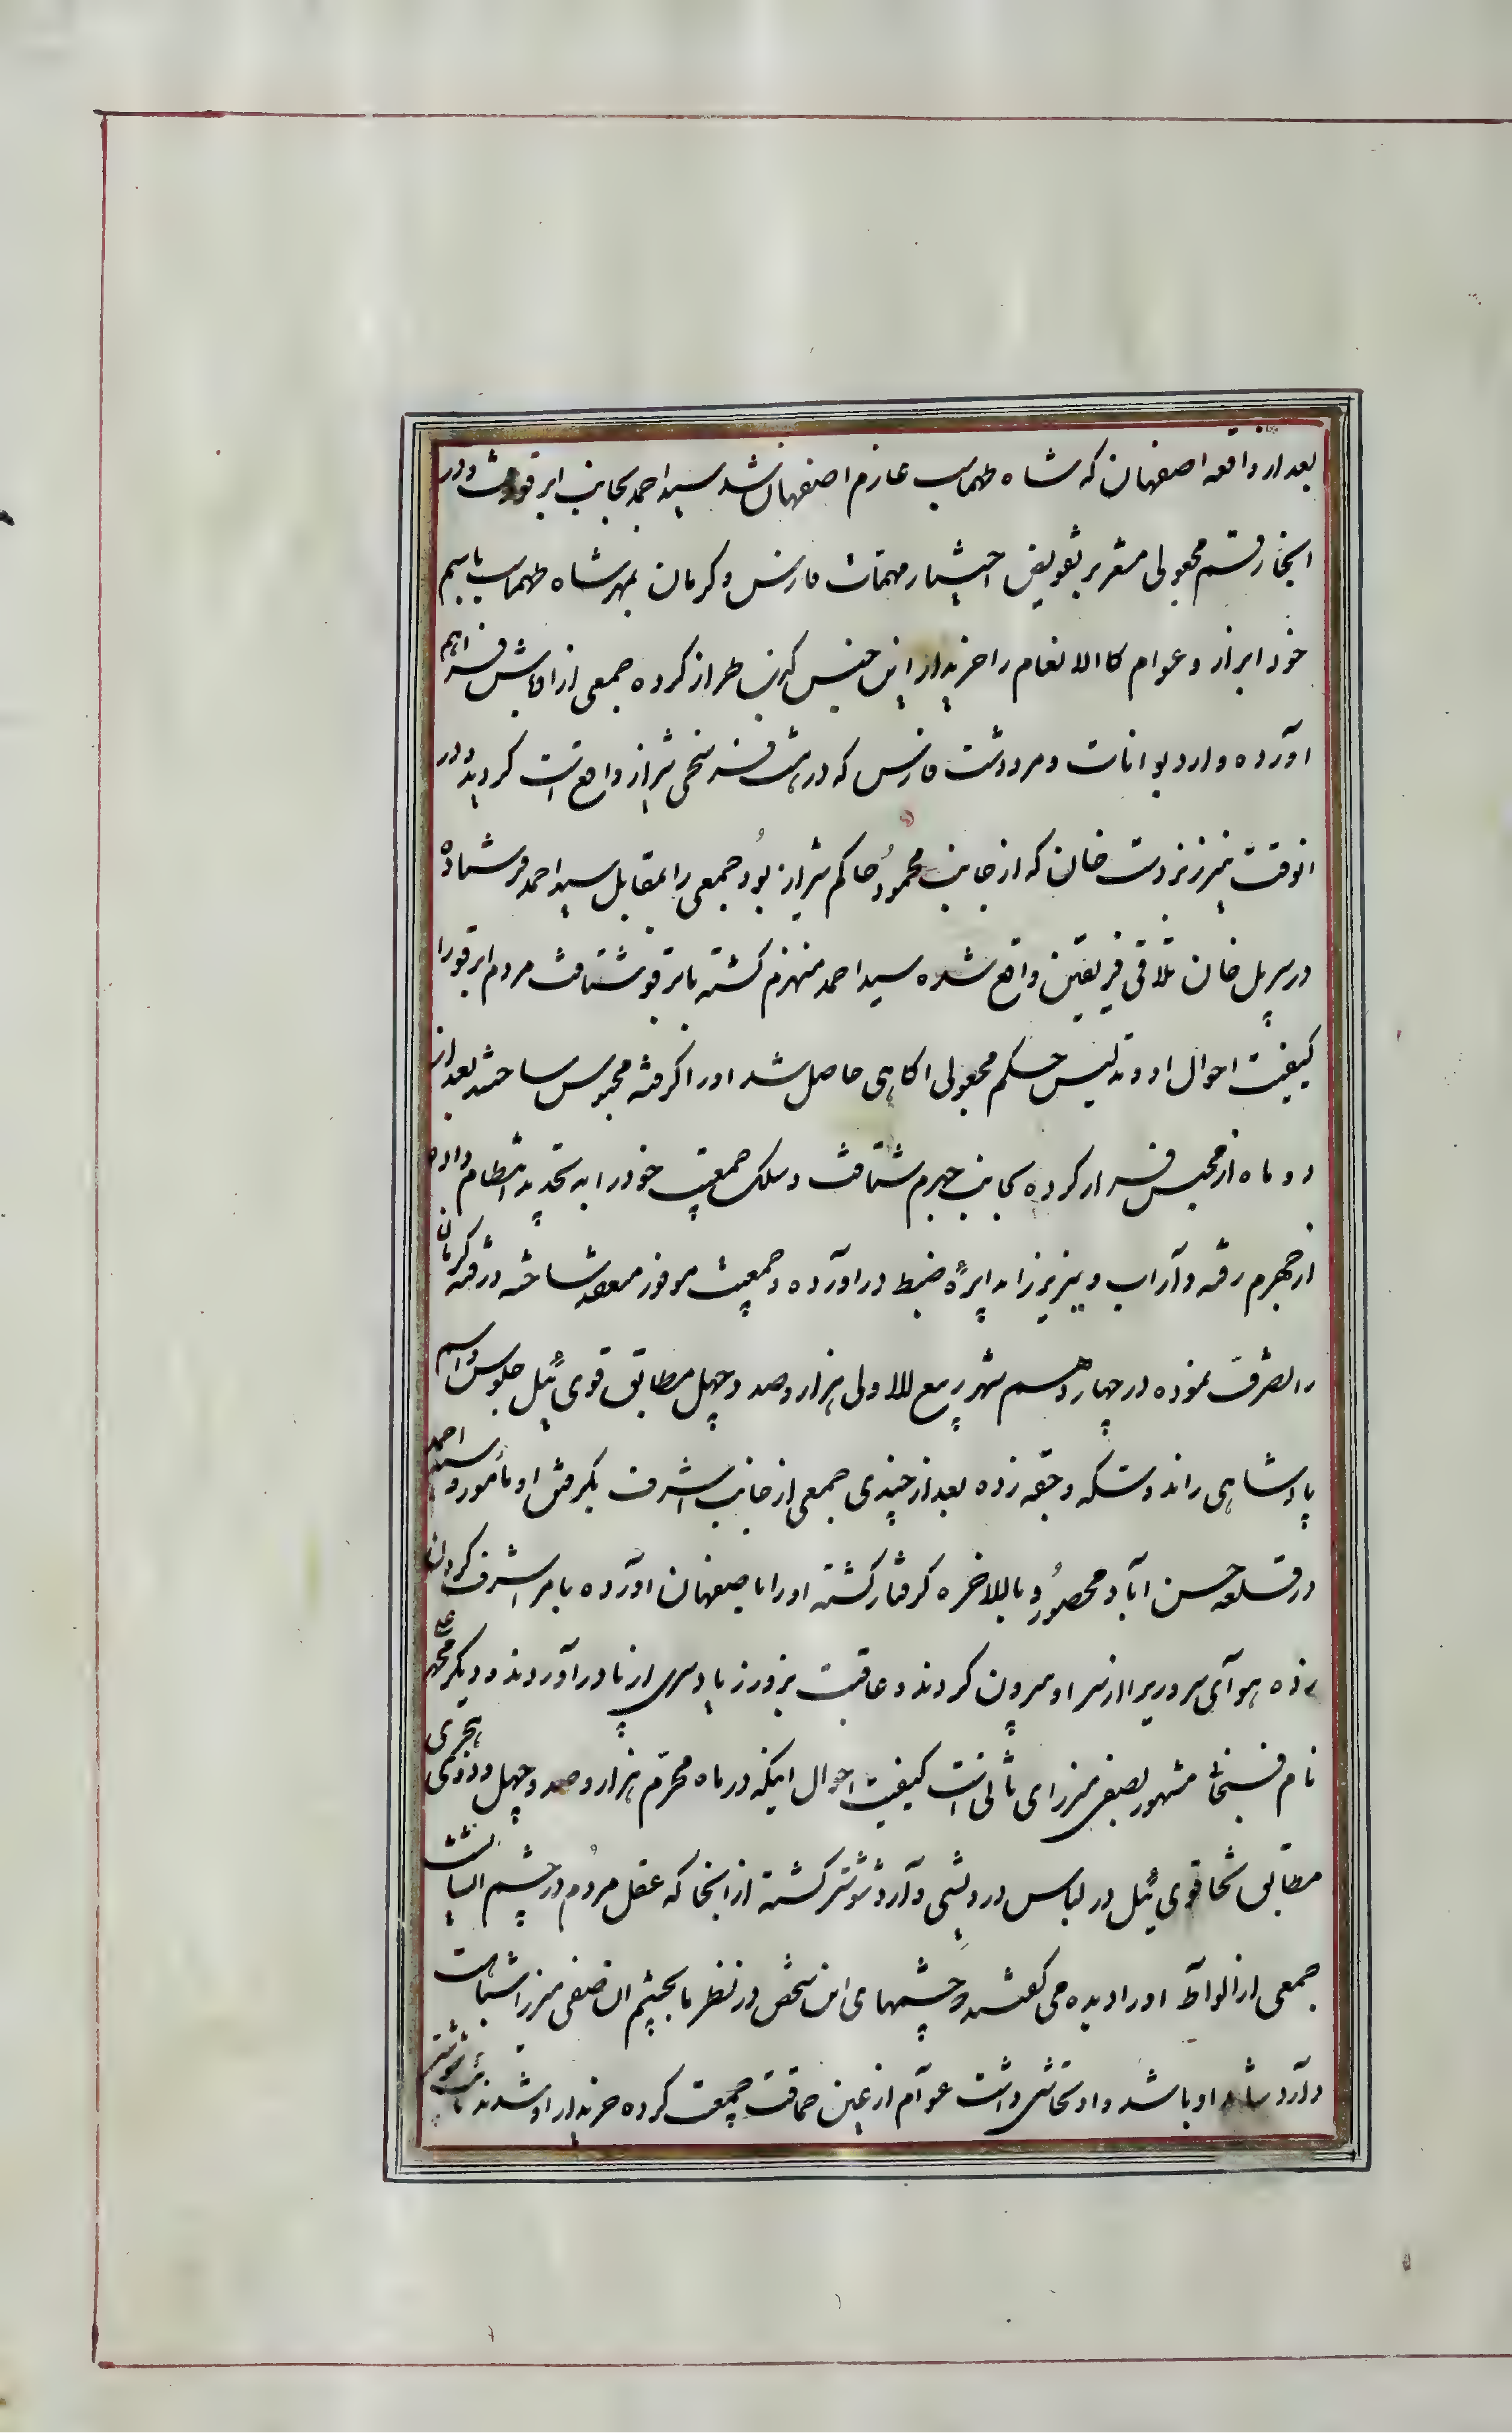 بعد از واقعه اصفهان که شاه طهماسب عازم اصفهان شد سید احمد بجانب ابرقو رفت و در
اینجا رقم مجعولی مشعر بر تفویض اختیار مهمات فارس و کرمان بمهر شاه طهماسب باسم
خود ابراز و عوام کالانعام را خریدار این جنس کذب طراز کرده جمعی از اوباش فراهم
آورده وارد بوانات و مرودشت فارس که در هشت فرسخی شیراز واقعست گردید و در
انوقت نیز زبردست خان که از جانب محمود حاکم شیراز بود جمعی را بمقابل سید احمد فرستاده
در سر پل خان تلاقی فریقین واقع شده سید احمد منهزم گشته بابرقو شتافت مردم ابرقو را
کیفیت احوال او و تلبیس حکم مجعولی اکاهی حاصل شد او را گرفته محبوس ساختند بعد از
دو ماه از محبس فرار کرده بجانب جهرم شتافت و سلک جمعیت خود را به تجدید انتظام داده
از جهرم رفته داراب و نیریز را به ضبط در آورده و جمعیت موفور ساخته در کرمان
را تصرف نموده در چهاردهم شهر ربیع الاولی هزار و صد و چهل مطابق قوی ئیل جلوس و اسم
پادشاهی راند و سکه و جقه زده بعد از چندی جمعی از جانب اشرف بگرفتن او مأمور و سید احمد
در قلعه حسن آباد محصور و بالاخره گرفتار گشته او را باصفهان آورده بامر اشرف گردن
زده هوای سروری را از سر او بیرون کردند و عاقبت بزور زیاد سری از پا در آوردند و دیگر محمد علی
نام رفسنجانی مشهور بصفی میرزای ثانی است کیفیت احوال اینکه در ماه محرم هزار و صد و چهل و دوی هجری
مطابق تخاقوی ئیل در لباس درویشی وارد شوشتر گشته از انجا که عقل مردم در چشم ایشانست
جمعی از الواط او را دیده می گفتند چشمهای این شخص در نظر ما بچشم ان صفی میرزا شباهت
دارد شاید او باشد و او تحاشی داشت عوام از عین حماقت جمعیت کرده خریدار او شدند شوشتر